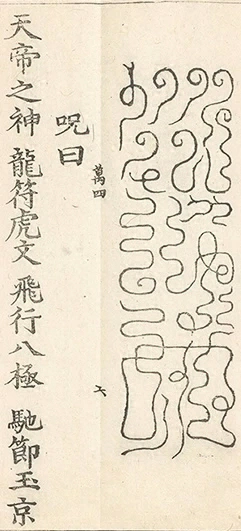 萬四
六
呪曰
天帝之神 龍符虎文 飛行八極 馳節玉京